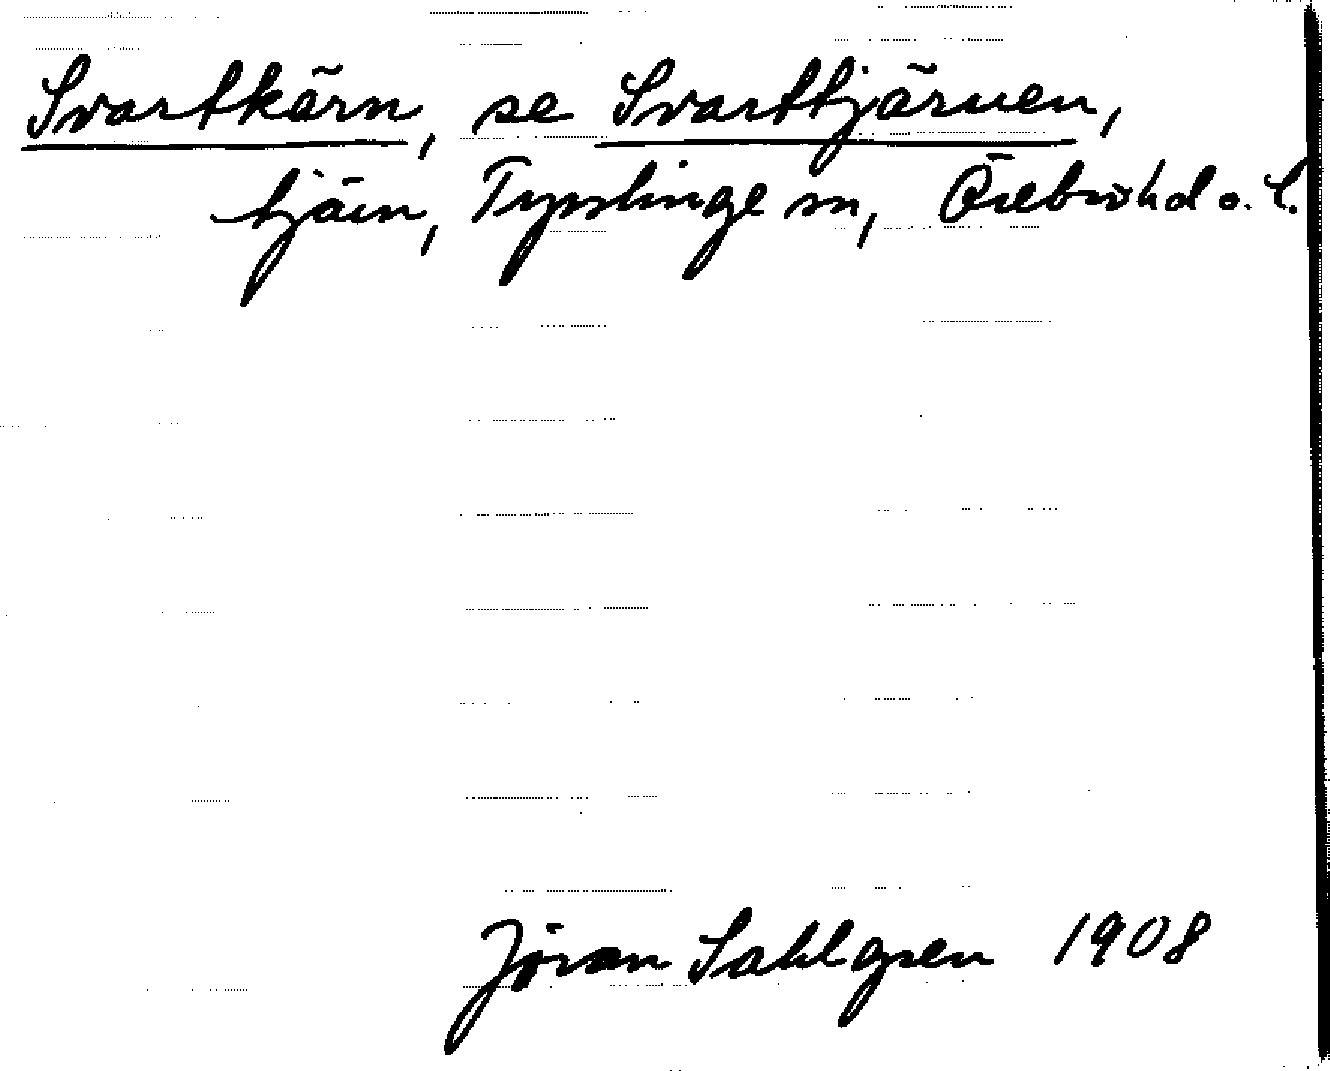 Svartkärn, se Svarttjärnen,
tjärn, Tysslinge sn, Örebro hd o. l.
Jöran Sahlgren 1908